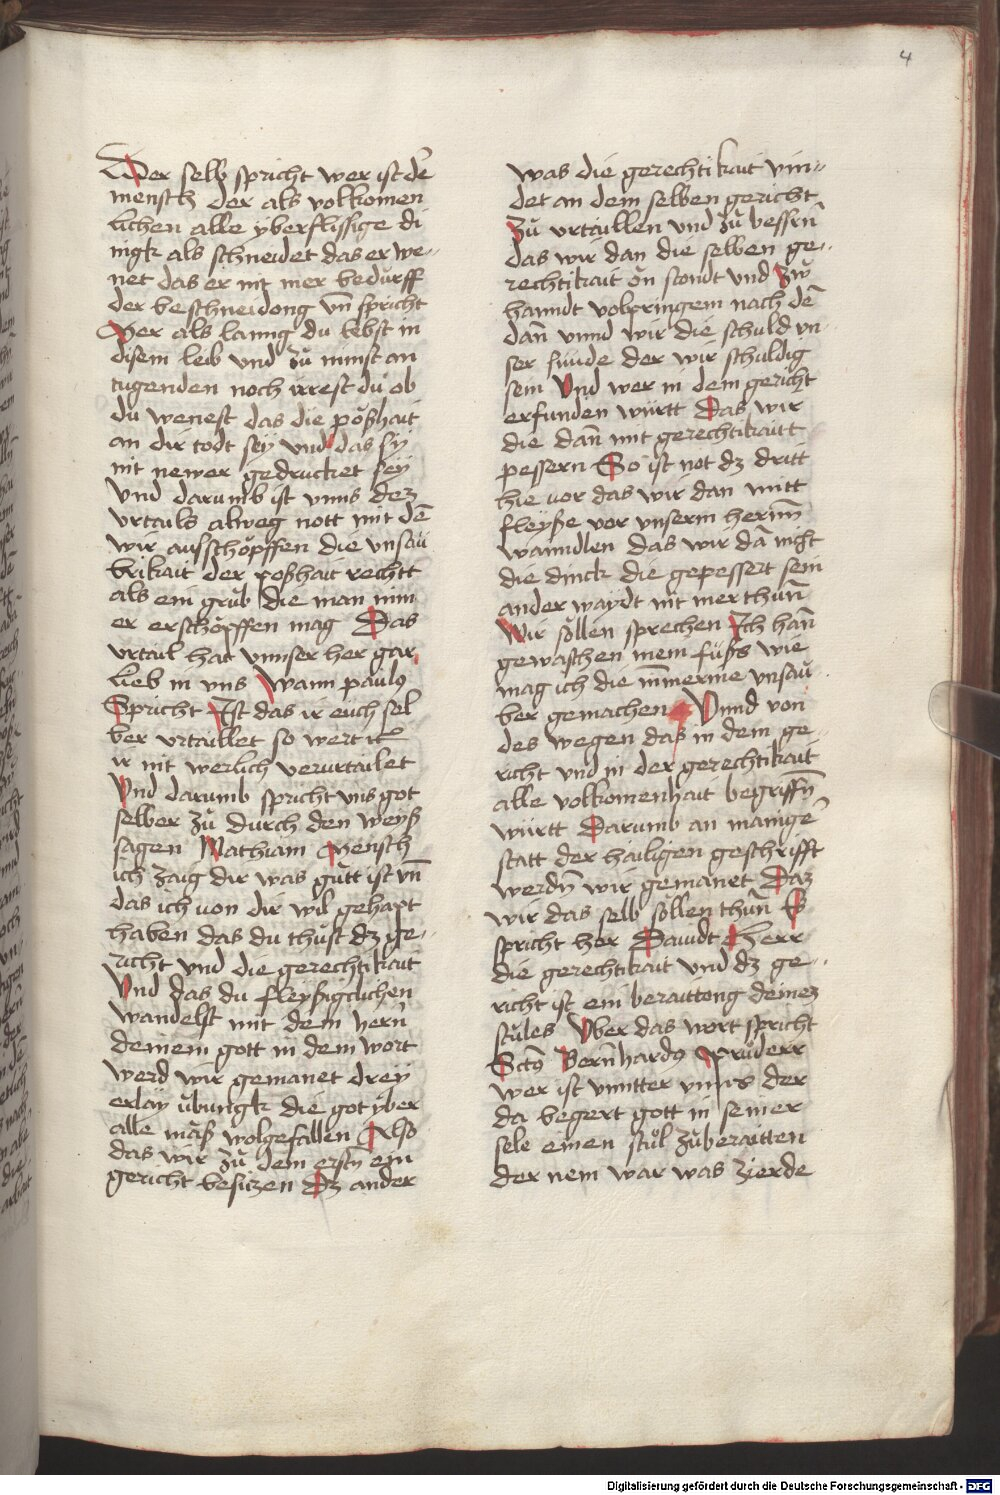 4
Der selb spricht wer ist dē
mensch der als volkomen
lichen alle ÿberflissige di
ingk als schneidet das er we-
net das er nit mer bedurff
der beschneidong vn̄ spricht
Wer als lanng du lebst in
disem leib und zu nimst an
tugenden noch irrest du ob
du wenest das die poßhait
an dir todt seÿ und das sÿ
nit newer gedrucket seÿ
Und darumb ist vnns dez
vrtails alweg nott mit dē
wir aufschöpffen die vnsau
brikait der poßhait rechtt
als ein grub die man nim
er erschöpffen mag Das
vrtail hat vnnser her gar
lieb in vns Wann paulꝰ
Spricht Ist das ir euch sel
ber vrtaillet so wert
ir nit werlich verurtailet
Und darumb spricht uns got
selber zu durch den weyß
sagen Mathiam Mensch
ich zaig dir was gutt ist vn̄
das ich von dir wil gehapt
haben das du thust dz ge-
richt und die gerechtikait
Und das du fleÿsigclichen
wandelst mit dem hern
deinem gott in dem wort
werd wir gemanet dreÿ
erlaÿ ubungk die got ÿber
alle maß wolgefallen Also
das wir zu dem erstn ein
gericht besitzen Dz ander
was die gerechtikait vin-
det an dem selben gericht
Zu vrtaillen und zu bessrn̄
das wir dan die selben ge-
rechtikait on stondt und zw
hanndt volpringem nach dē
dan̄ vnnd wir die schuld vn
ser sunde der wir schuldig
sein Und wer in dem gericht
erfunden wurtt Das wir
die dan̄ mit gerechtikaitt
pessern So ist not dz dritt
hie vor das wir dan mitt
fleyße vor vnserm hernn
wanndlen das wir dā nicht
die dinck die gepessert sein
ander wayrdt nit mer thun̄
Wir söllen sprechen Ich han̄
gewaschen mein füßs wie
mag ich die nim̄erme vnsau
ber gemachen Unnd von
des wegen das in dem ge-
richt und in der gerechtikait
alle volkomenhait begriffn̄
wurtt Darumb an mainge
statt der hailigen geschrifft
werdn̄ wir gemanet Daz
wir das selb sollen thun̄ E
spricht her Dauidt Herr
die gerechtikait und dz ge-
richt ist ein beraittong deinez
stules Uber das wort spricht
Sctꝰ Bern̄hardꝰ pruderr
wer ist vnntter vnns der
da begert gott in seiner
sele einen stul zuberaitten
der nem war was zierde
Digitalisierung gefördert durch die Deutsche Forschungsgemeinschaft - DFG